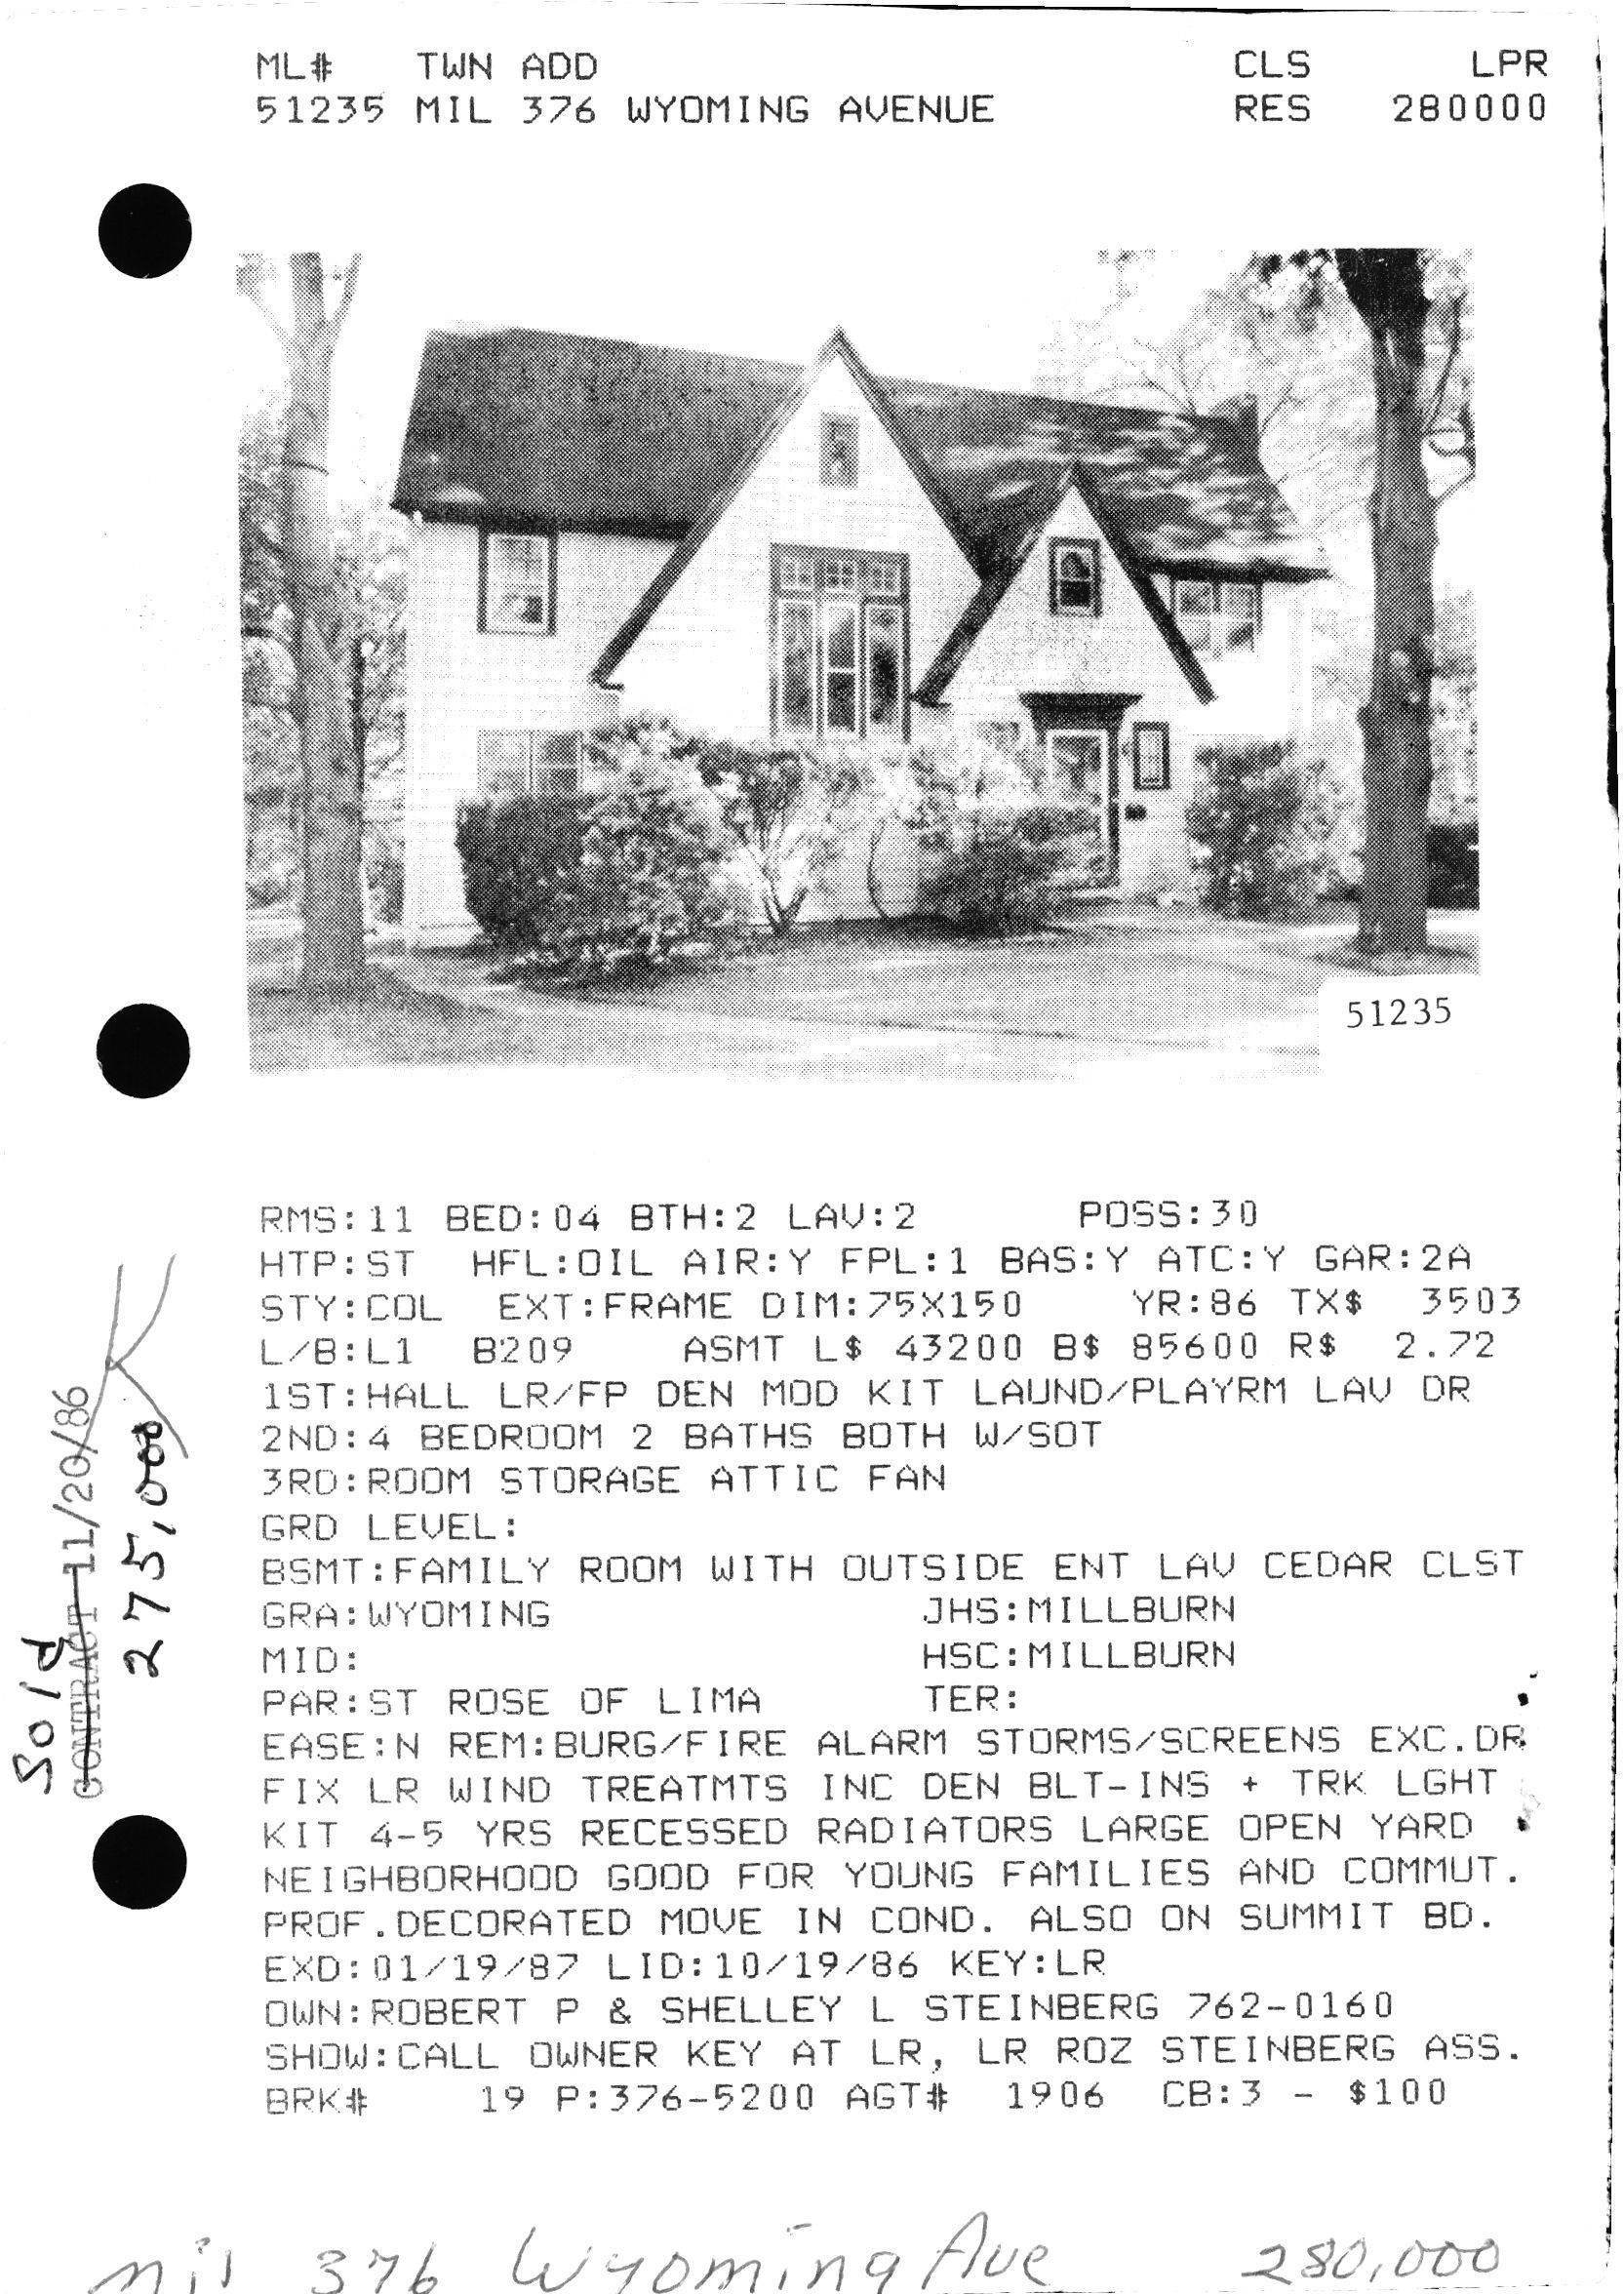 ML# TWN ADD CLS LPR
51235 MIL 376 WYOMING AVENUE RES 280000
51235
RMS:11 BED:04 BTH:2 LAV:2 POSS:30
HTP:ST HFL:OIL AIR:Y FPL:1 BAS:Y ATC:Y GAR:2A
STY:COL EXT:FRAME DIM:75X150 YR:86 TX$ 3503
L/B:L1 B209 ASMT L$ 43200 B$ 85600 R$ 2.72
1ST:HALL LR/FP DEN MOD KIT LAUND/PLAYRM LAV DR
2ND:4 BEDROOM 2 BATHS BOTH W/SOT
3RD:ROOM STORAGE ATTIC FAN
GRD LEVEL:
BSMT:FAMILY ROOM WITH OUTSIDE ENT LAV CEDAR CLST
GRA:WYOMING JHS:MILLBURN
MID: HSC:MILLBURN
PAR:ST ROSE OF LIMA TER:
EASE:N REM:BURG/FIRE ALARM STORMS/SCREENS EXC.DR
FIX LR WIND TREATMTS INC DEN BLT-INS + TRK LGHT
KIT 4-5 YRS RECESSED RADIATORS LARGE OPEN YARD
NEIGHBORHOOD GOOD FOR YOUNG FAMILIES AND COMMUT.
PROF.DECORATED MOVE IN COND. ALSO ON SUMMIT BD.
EXD:01/19/87 LID:10/19/86 KEY:LR
OWN:ROBERT P & SHELLEY L STEINBERG 762-0160
SHOW:CALL OWNER KEY AT LR, LR ROZ STEINBERG ASS.
BRK# 19 P:376-5200 AGT# 1906 CB:3 - $100
Sold
CONTRACT 11/20/86 K
275,000
Mil 376 Wyoming Ave 280,000